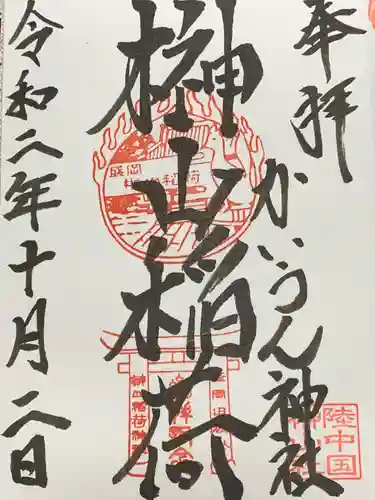 奉拝
かいうん神社
榊山稲荷
令和二年十月二日
盛岡
陸中国